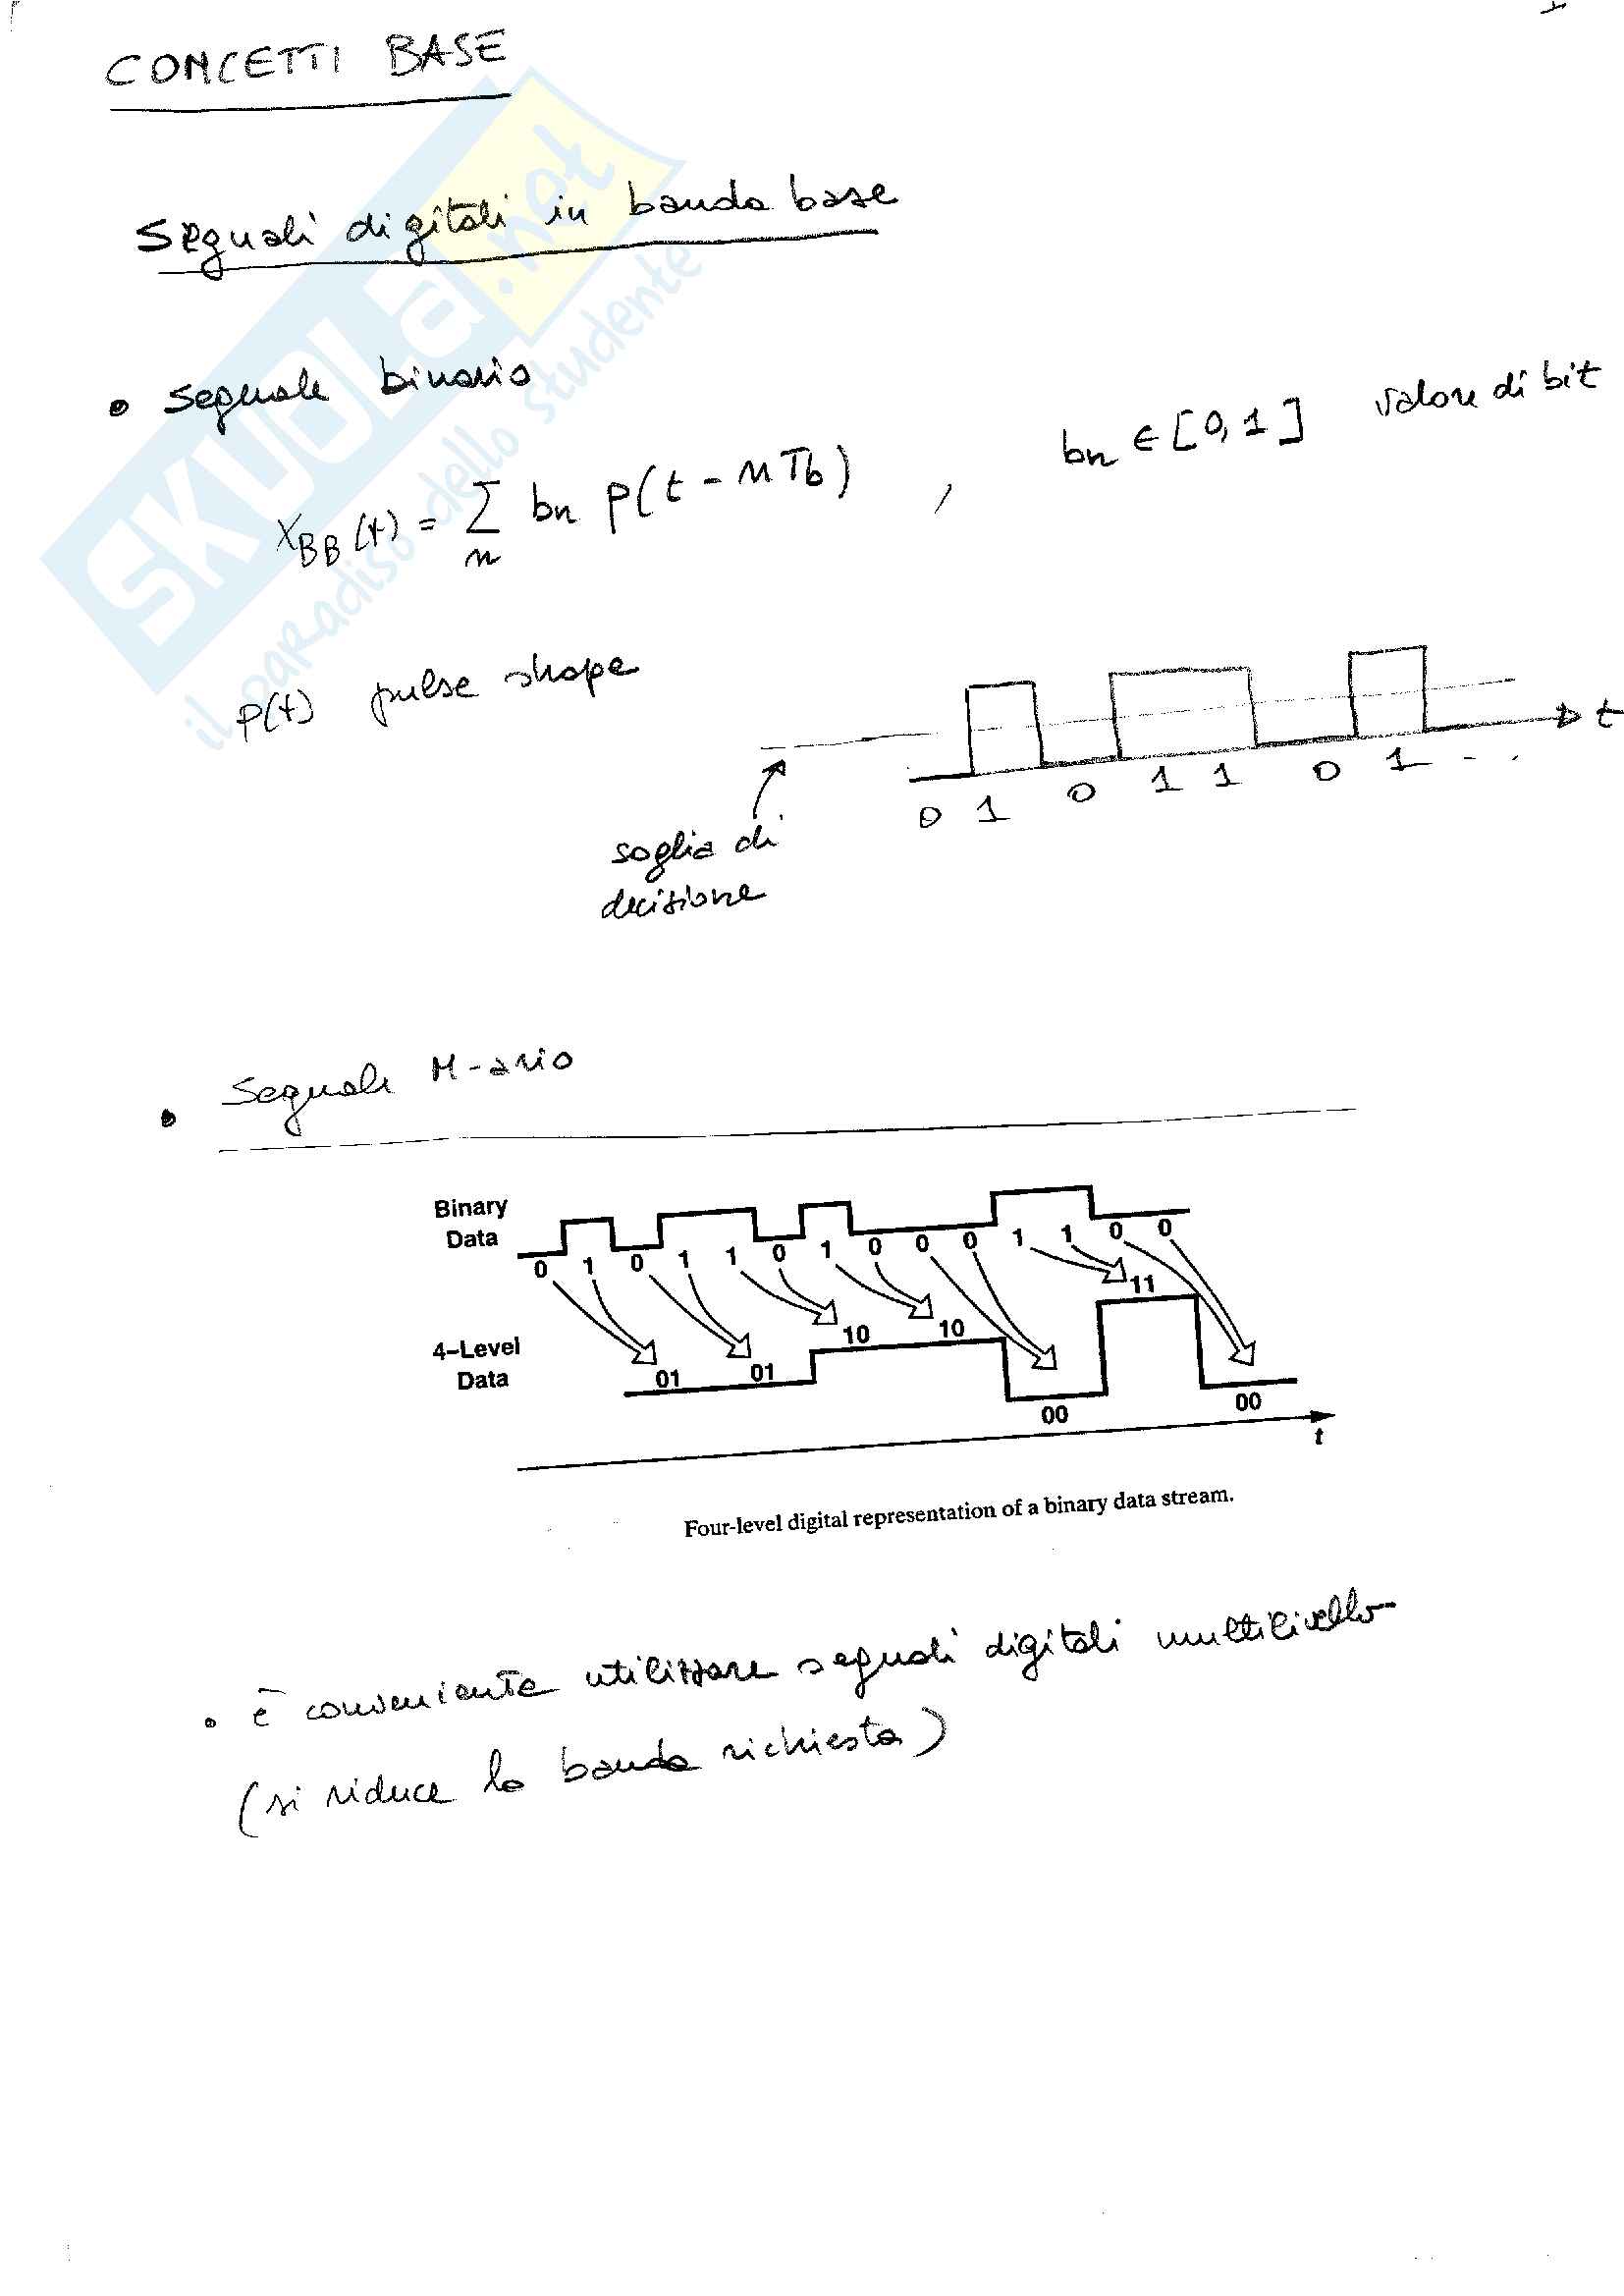 CONCETTI BASE
Segnali digitali in banda base
• segnale binario
bn ∈ [0,1] valore di bit
XBB(t) = Σn bn p(t - nTb) ,
p(t) pulse shape
t
0 1 0 1 1 0 1 - - .
soglia di
decisione
• Segnale M-ario
Binary
Data
0 1 0 1 1 0 1 0 0 0 1 1 0 0
4–Level
Data
01 01 10 10 00 11 00
t
Four-level digital representation of a binary data stream.
• è conveniente utilizzare segnali digitali multilivello
(si riduce la banda richiesta)
SKUOLA.net
il paradiso dello studente